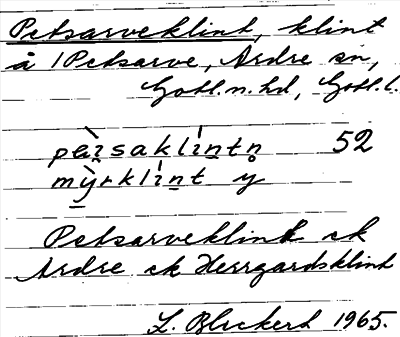 Petsarveklint, klint
å 1 Petsarve, Ardre sn,
Gotl.n.hd, Gotl.l.
pài̯saklíntn̥ 52
mỳrklínt y
Petsarveklink ek
Ardre ek Herrgardsklint
L. Bleckert 1965.